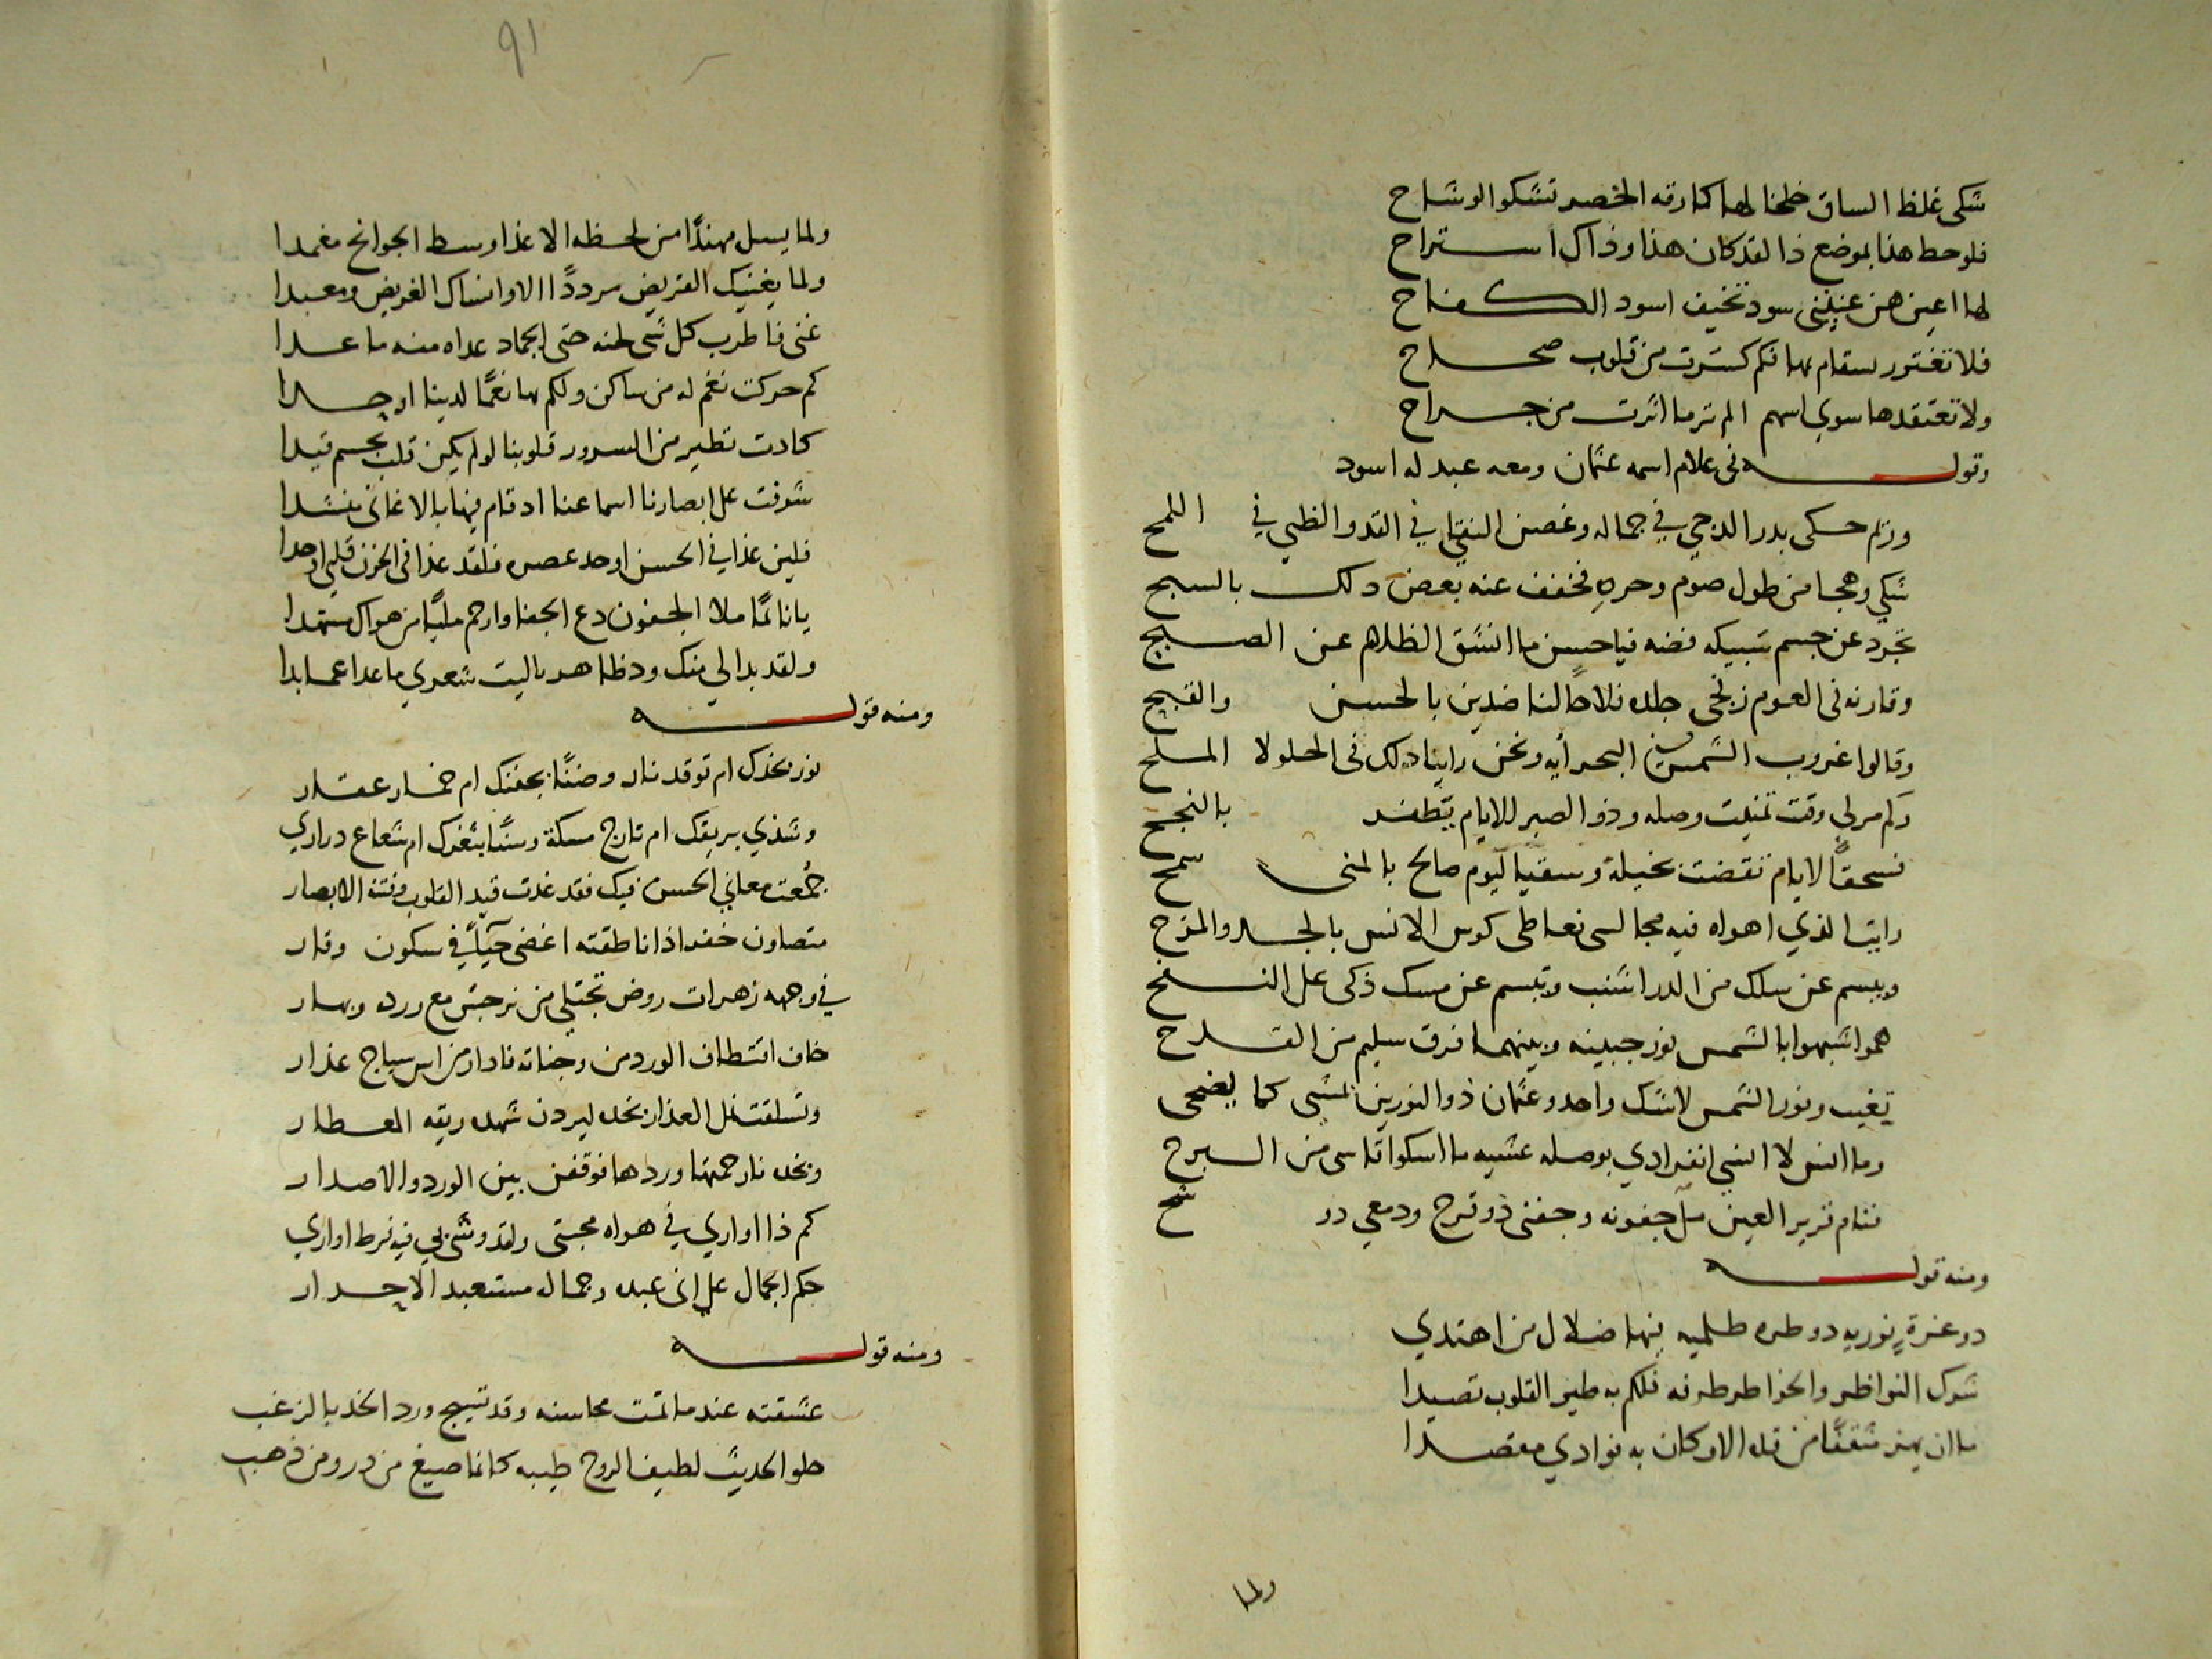 شكى غلظ الساق خلخالها كما رقه الخصر تشكوا الوشاح
فلو حط هذا بموضع ذا لقد كان هذا وذاك استراح
لها اعين هن عنيننى سود تخيف اسود الكفاح
فلا تغترر بسقام بها فكم كسرت من قلوب صحاح
ولا تعتقدها سوي اسهم الم تر ما اثرت من جراح
وقوله فى غلام اسمه عثمان ومعه عبد له اسود
وريم حكى بدر الدجي في جماله وغصن النقا في القد والظبي في اللمح
شكي وهجا من طول صوم وحره فخفف عنه بعض دلك بالسبح
تجرد عن جسم سبيكه فضه فيا حسن ما انشق الظلام عن الصبح
وقارنه فى العوم زنجى جلده فلاحا لنا ضدين بالحسن والقبح
وقالوا غروب الشمس في البحر أيه ونحن راينا دلك فى الحلو لا الملح
وكم مر لي وقت تمنيت وصله وذو الصبر للايام يظفر بالنجح
فسحقًا لايام تقضت بخيلة وسقيا ليوم صالح بالمنى سمح
رايت الذي اهواه فيه مجالسى نعاطى كوس الانس بالجد والمزح
ويبسم عن سلك من الدر اشنب ويبسم عن مسك ذكى على النفح
هموا شبهوا بالشمس نور جبينه وبينهما فرق سليم من القدح
تغيب ونور الشمس لا شك واحد وعثمان ذو النورين يمشى كما يضحى
وما انس لا انسي انفرادي بوصله عشيه ما اسكوا قاسى من البرح
ننام قرير العين ملأ جفونه وجفنى ذو قرح ودمعي در شح
ومنه قوله
دو غرة نوريه دو طره ظلميه فيها ضلال من اهتدي
شرك النواظر والخواطر طرفه فلكم به طير القلوب تصيدا
ما ان يهز مثقفًا من قده الا وكان به فوادي مقصدا
ولما
٩١
ولما يسل مهندًا من لحظه الا غذا وسط الجوانح مغمدا
ولما يغنيك القريض مرددًا الا وانساك الغريض ومعبدا
غنى فاطرب كل شى لحنه حتى الجماد عداه منه ما عدا
كم حركت نغم له من ساكن ولكم بها نغمًا لدينا اوجدا
كادت تطير من السرور قلوبنا لو لم يكن قلب بجسم قيدا
شرفت على ابصارنا اسماعنا اد قام فيها بالاغانى منشدا
فلين غذا في الحسن اوحد عصره فلقد غذا فى الحزن قلبي اوحدا
يا نائمًا ملا الجفون دع الجفا وارحم ملبًا من هواك مسهدا
ولقد بدا لي منك ود ظاهر يا ليت شعري ما عدا عما بدا
ومنه قوله
نور بخدك ام توقد نار وضنًا بجفنك ام خمار عقار
وشذي بريقك ام تارج مسكة وسنًا بثغرك ام شعاع دراري
جُمعت معاني الحسن فيك فقد غدت قيد القلوب وفتنة الابصار
متصاون خفر اذا ناطقته اغضى حيآءً في سكون وقار
في وجهه زهرات روض تجتلى من نرجس مع ورده وبهار
خاف اقتطاف الورد من وجناته فادار من اس سياج عذار
وتسلقت نمل العذار بخده ليردن شهده ريقه المعطار
وبخده نار حمتها وردها فوقفن بين الورد والاصدار
كم ذا اواري في هواه محبتى ولقد وشى بي فيه فرط اواري
حكم الجمال على انى عبده وجماله مستعبد الاحرار
ومنه قوله
عشقته عندما تمت محاسنه وقد تسيج ورد الخد بالزغب
حلو الحديث لطيف الروح طيبه كانما صيغ من در ومن ذهب